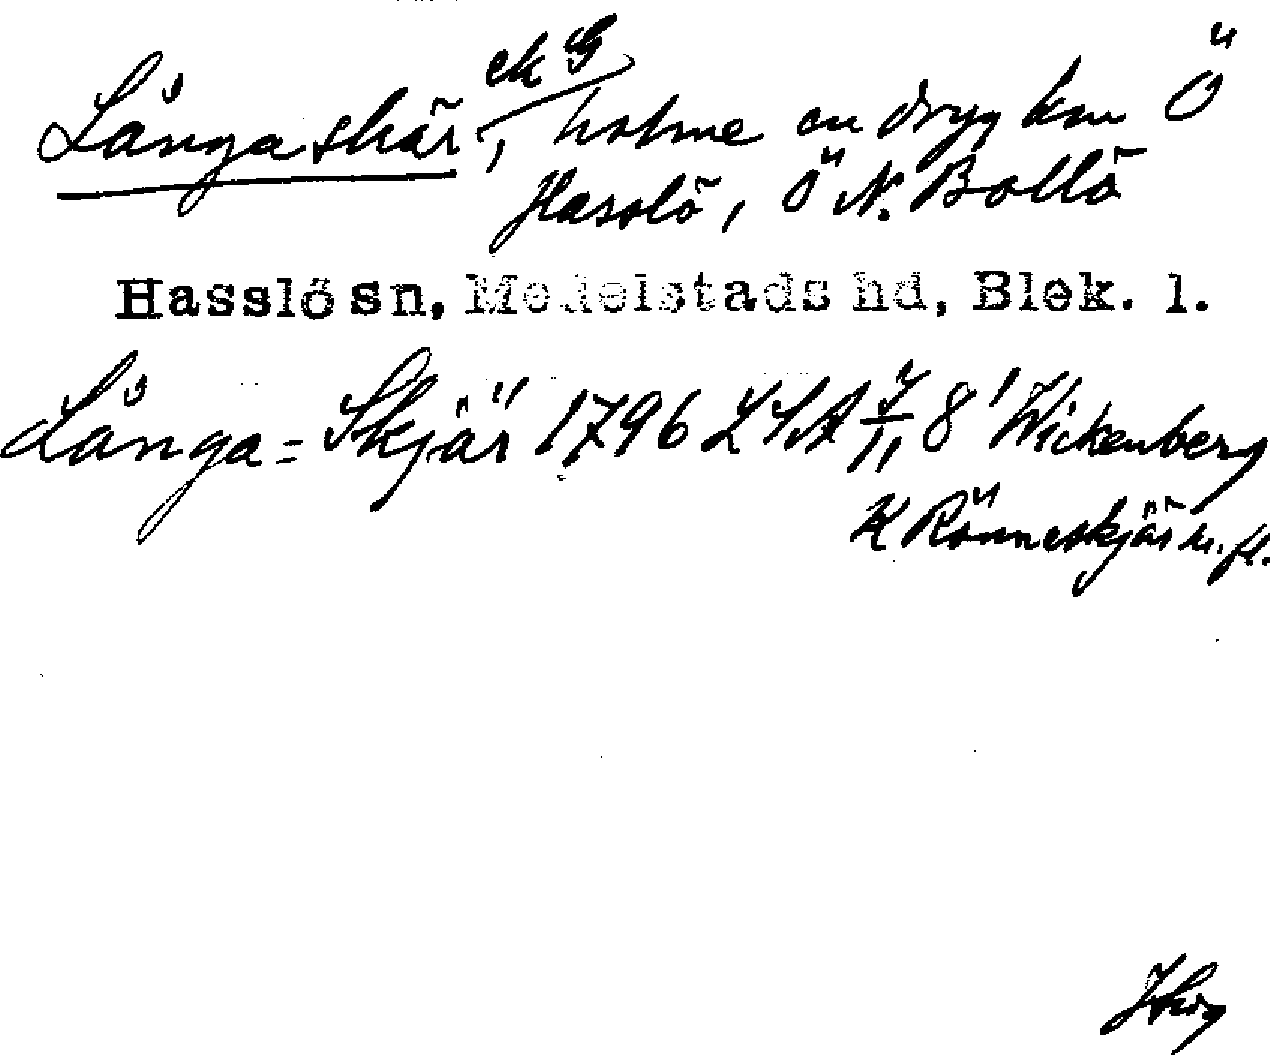 ek G
Långaskär, holme en dryg km Ö
Hasslö, Ö N. Bollö
Hasslö sn, Medelstads hd, Blek. l.
Långa=Skjär 1796 LSA 8' Wickenberg
K Rönneskjär m. fl.